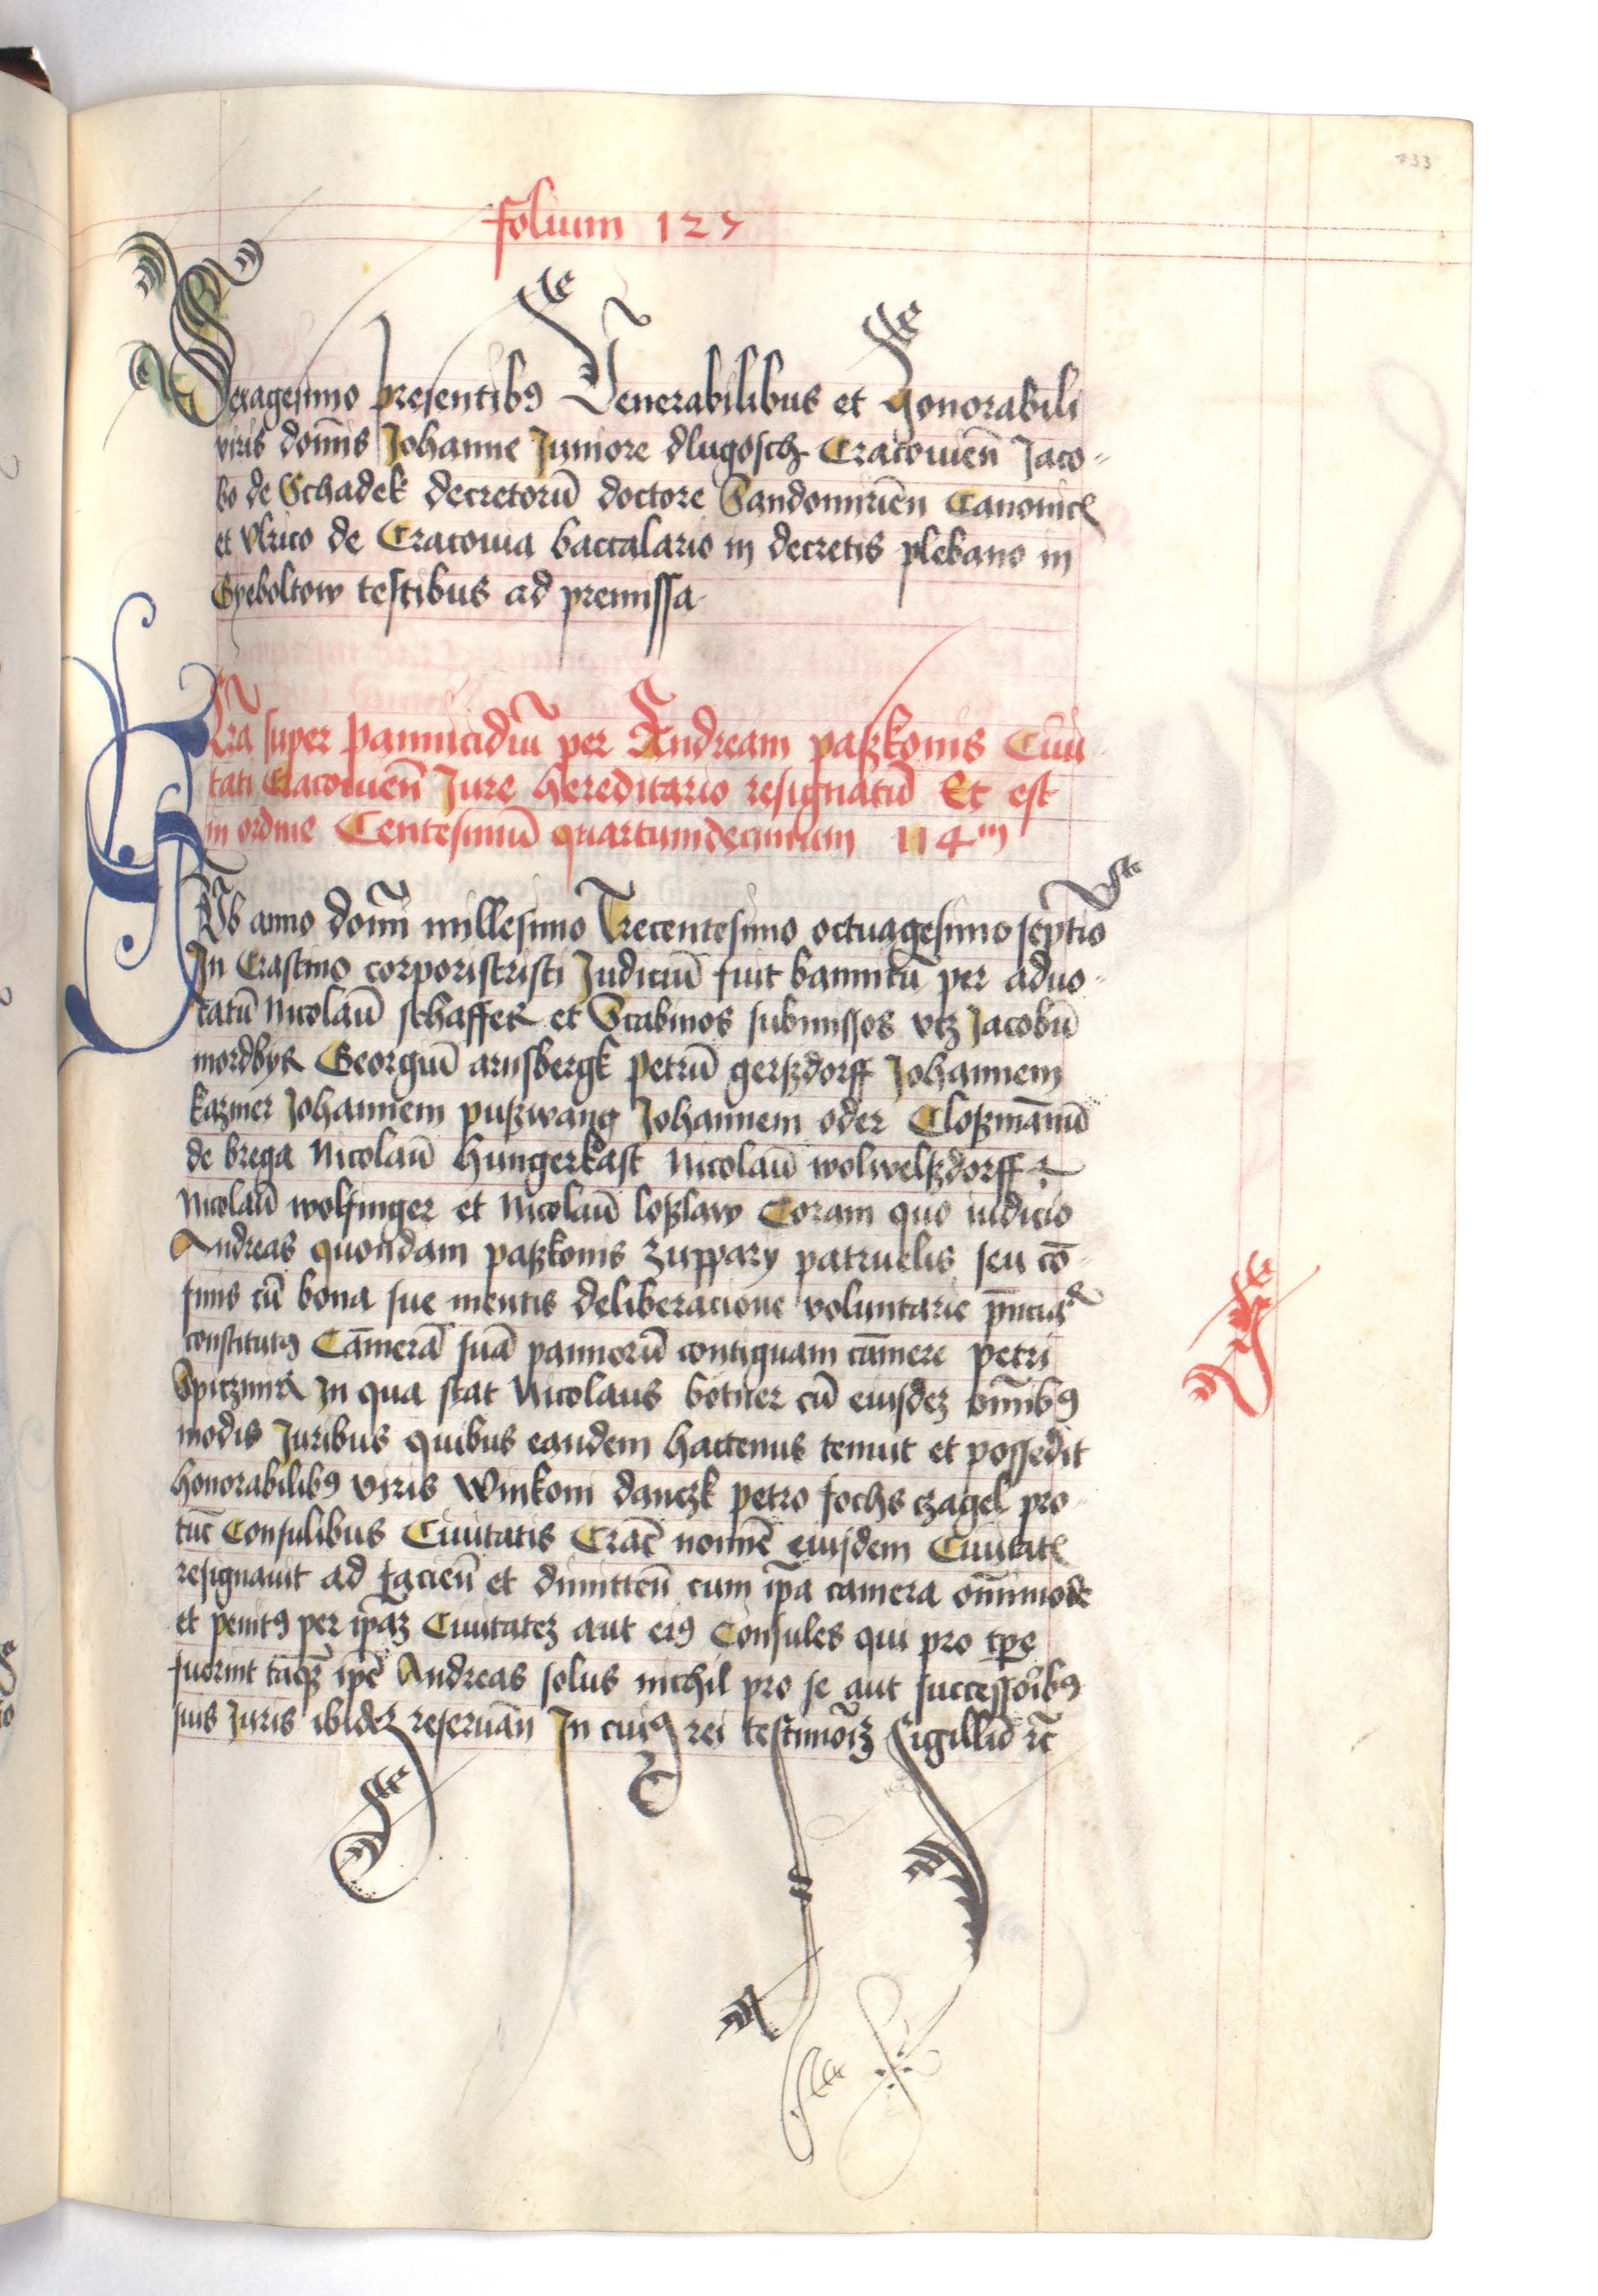 133
folium 127
Sexagesimo presentibꝯ Venerabilibus et Honorabili
viris domīs Johanne Juniore dlugosch Cracouien̄ Jaco-
bo de Schadek decretorū doctore Sandomirien̄ Canonicꝭ
et Vlrico de Cracouia baccalario in decretis plebano in
Gyeboltow testibus ad premissa
Lr̄a super pannicidiū per Andream paßkonis Ciui
tati Cracouien̄ Jure hereditario resignatū Et est
in ordine Centesimū quartumdecimum 114m
Sub anno domī millesimo Trecentesimo octuagesimo septīo
In Crastino corporiscristi Judiciū fuit bannitū per aduo-
catū Nicolaū schaffer et Scabinos submissos vtz Jacobū
mordbyr Georgiū arnsbergk petrū gerßdorff Johannem
kazmer Johannem pußwang Johannem oder Cloßmānū
de brega Nicolaū hungerkast Nicolaū wolwelßdorff
Nicolaū wolfinger et Nicolaū loßlaw Coram quo iudicio
Andreas quondam paßkonis zuppary patruelis seu cō
finis cū bona sue mentis deliberacione voluntarie
constitutꝯ Cāmerā suā pannorū contiguam cāmere petri
Spiczmir In qua stat Nicolaus botner cū eiusdez om̄ibꝯ
modis Juribus quibus eandem hactenus tenuit et possedit
honorabilibꝯ viris Winkoni danczk petro fochs czagel pro
tūc Consulibus Ciuitatis Crac̄ nomīe eiusdem Ciuitatꝭ
resignauit ad faciēn et dimittēn cum ip̄a camera om̄imode
et penitꝯ per ip̄az Ciuitatez aut eiꝯ Consules qui pro tp̄e
fuerint tāqz ip̄e Andreas solus nichil pro se aut successoībꝯ
suis Juris ibidez reseruān In cuiꝯ rei testimōiz Sigillū ꝛc̄